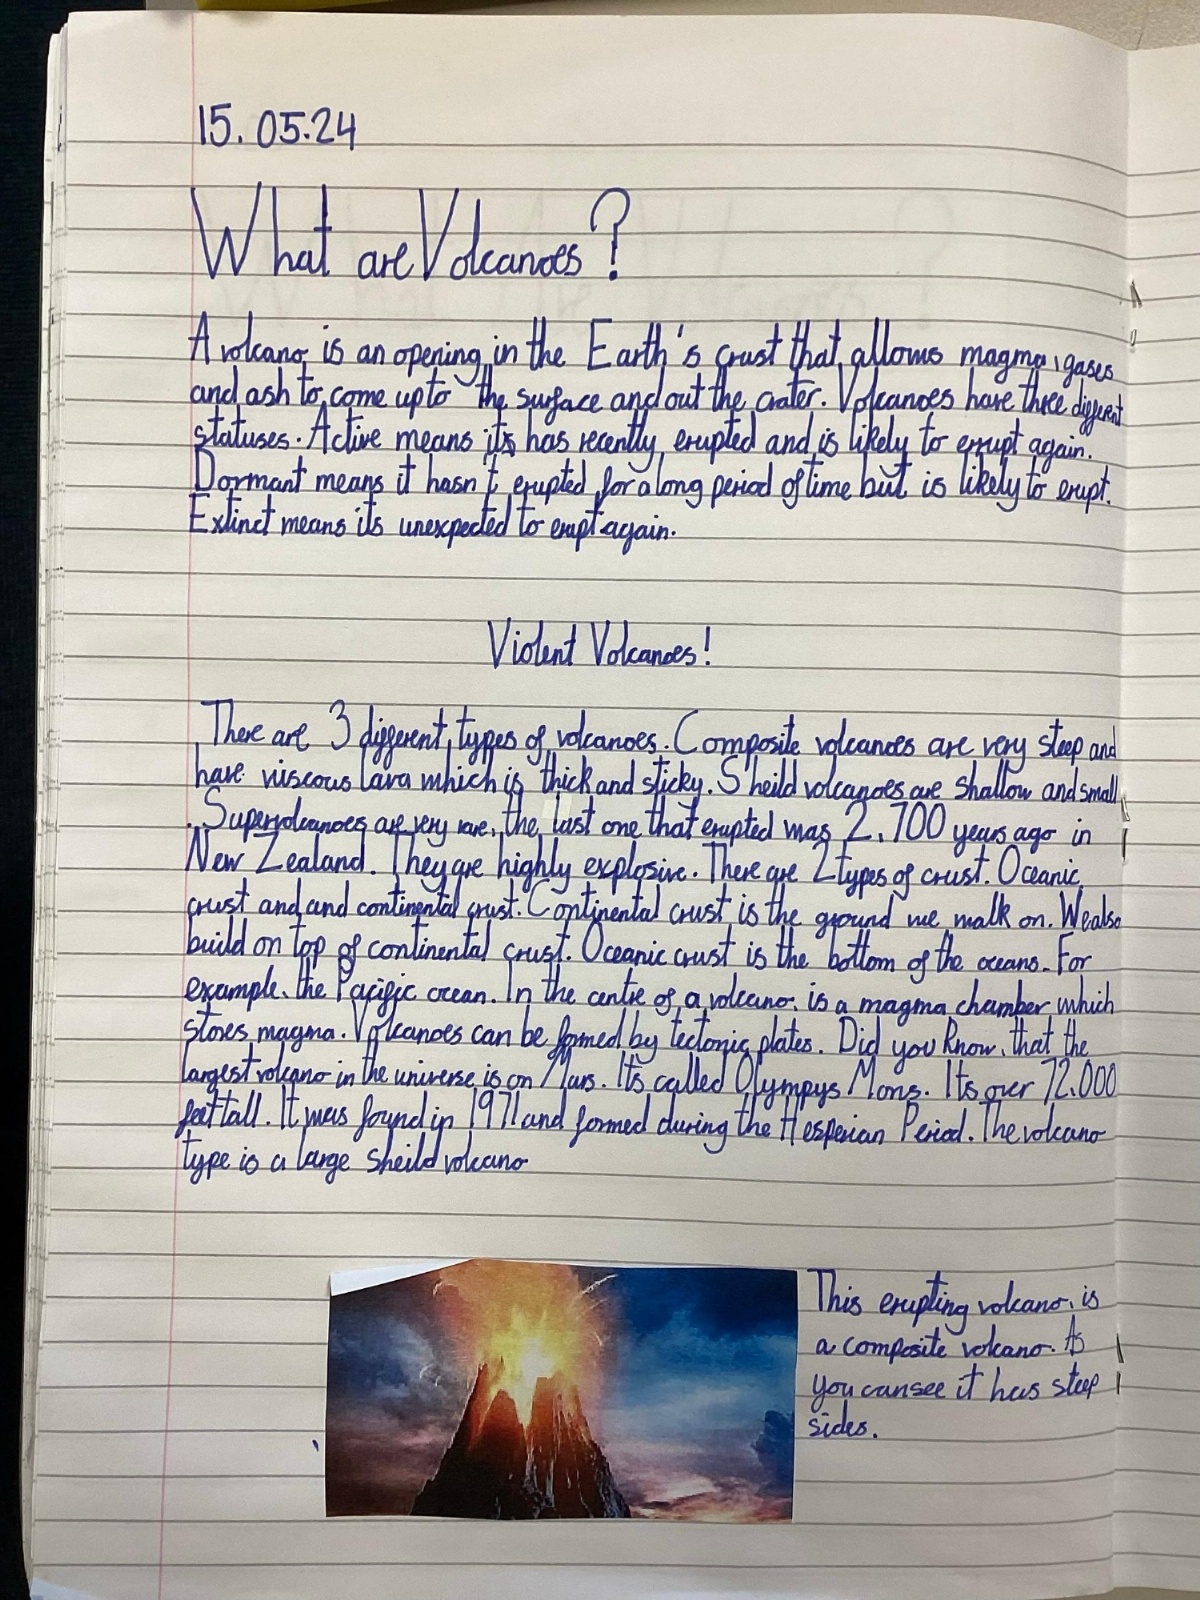 15.05.24
What are Volcanoes?
A volcano, is an opening, in the Earth's crust that, allows magma, gases
and ash to, come up to the surface and out the crater. Volcanoes have three different
statuses. Active means its has recently, erupted and is likely to errupt again.
Dormant means it hasn't erupted, for a long period of time but is likely to erupt.
Extinct means its unexpected to erupt again.
Violent Volcanoes!
There are 3 different, types of volcanoes. Composite volcanoes are very steep and
have viscous lava which is thick and sticky. Sheild volcanoes are shallow and small
. Supervolcanoes are very rare, the last one that erupted was 2,700 years ago in
New Zealand. They are highly explosive. There are 2 types of crust. Oceanic
crust and and continental crust. Continental crust is the ground we walk on. We also
build on top of continental crust. Oceanic crust is the bottom of the oceans. For
example, the Pacific ocean. In the centre of a volcano, is a magma chamber which
stores magma. Volcanoes can be formed by tectonic plates. Did you know, that the
largest volcano in the universe is on Mars. Its called Olympys Mons. Its over 72,000
feet tall. It was found in 1971 and formed during the Hesperian Period. The volcano
type is a large sheild volcano
This erupting volcano, is
a composite volcano. As
you can see it has steep
sides.